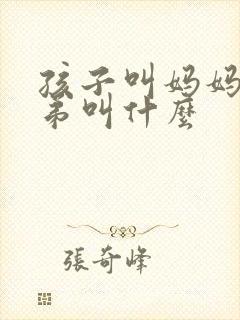 孩子叫妈妈
弟叫什麼
張奇峰